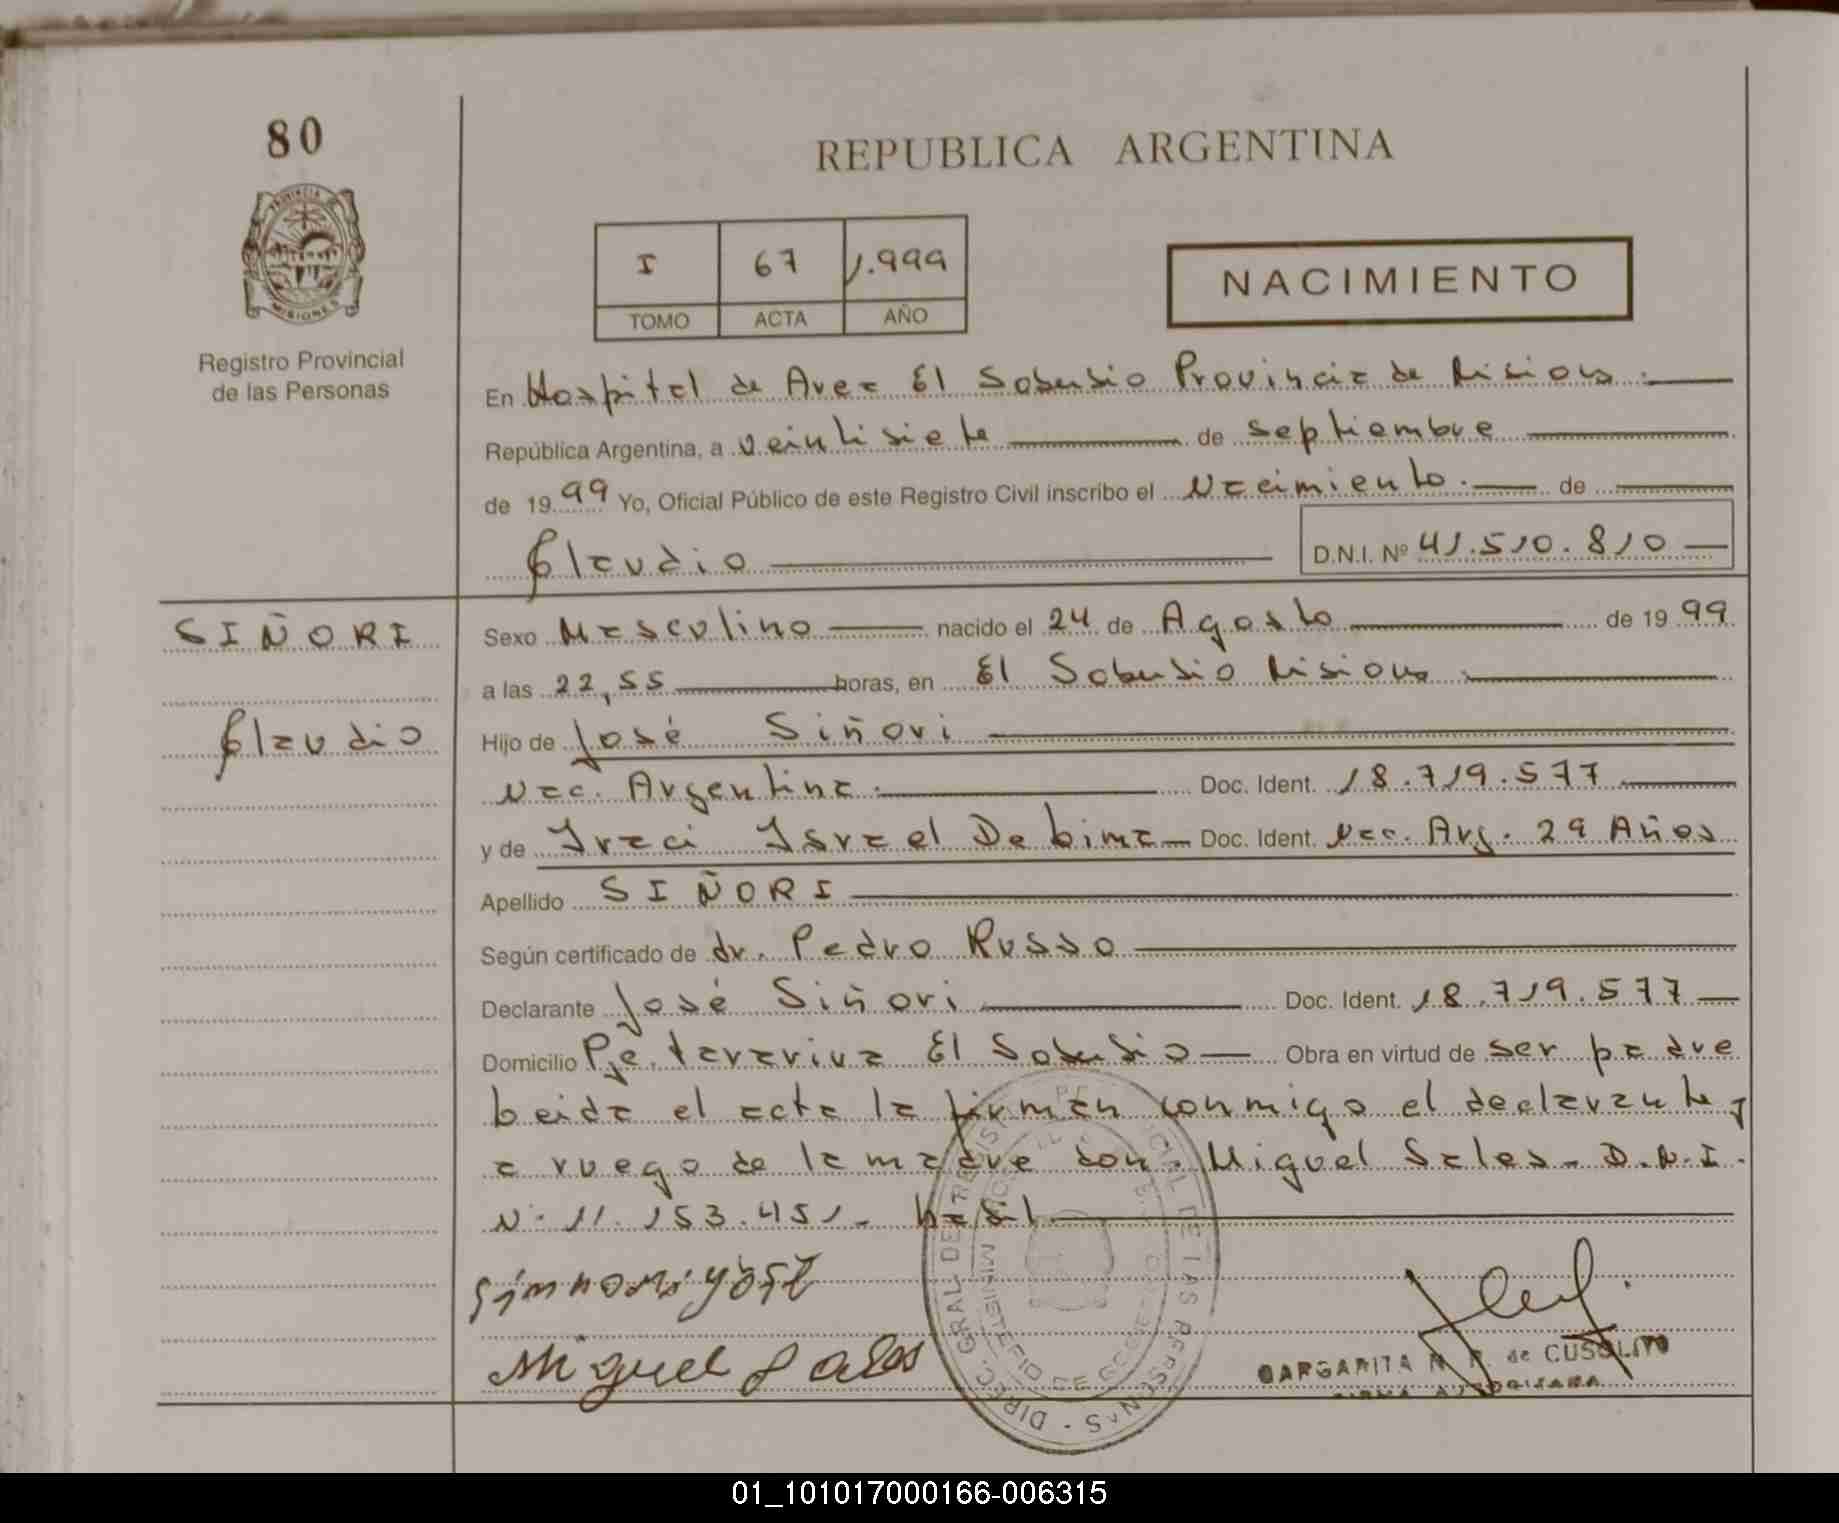 80
REPUBLICA ARGENTINA
PROVINCIA DE
MISIONES
Registro Provincial
de las Personas
I 67 1.999
TOMO ACTA AÑO
NACIMIENTO
En Hospital de Area El Soberbio Provincia de Misiones.
República Argentina, a veintisiete de septiembre
de 1999 Yo, Oficial Público de este Registro Civil inscribo el Nacimiento. de
Claudio D.N.I. Nº 41.510.810
SIÑORI
Claudio
Sexo Masculino nacido el 24 de Agosto de 1999
a las 22,55 horas, en El Soberbio Misiones
Hijo de José Siñori
Nac. Argentina. Doc. Ident. 18.719.577
y de Iraci Israel De bima Doc. Ident. Nac. Arg. 29 Años
Apellido SIÑORI
Según certificado de dr. Pedro Russo
Declarante José Siñori Doc. Ident. 18.719.577
Domicilio Pje. tararira El Soberbio Obra en virtud de ser padre
Leida el acta la firman conmigo el declarante y
a ruego de la madre don. Miguel Sales - D.N.I.
Nº 11.153.451-
Miguel Sales
MARGARITA de CUSOLITO
FIRMA AUTORIZADA
01_101017000166-006315